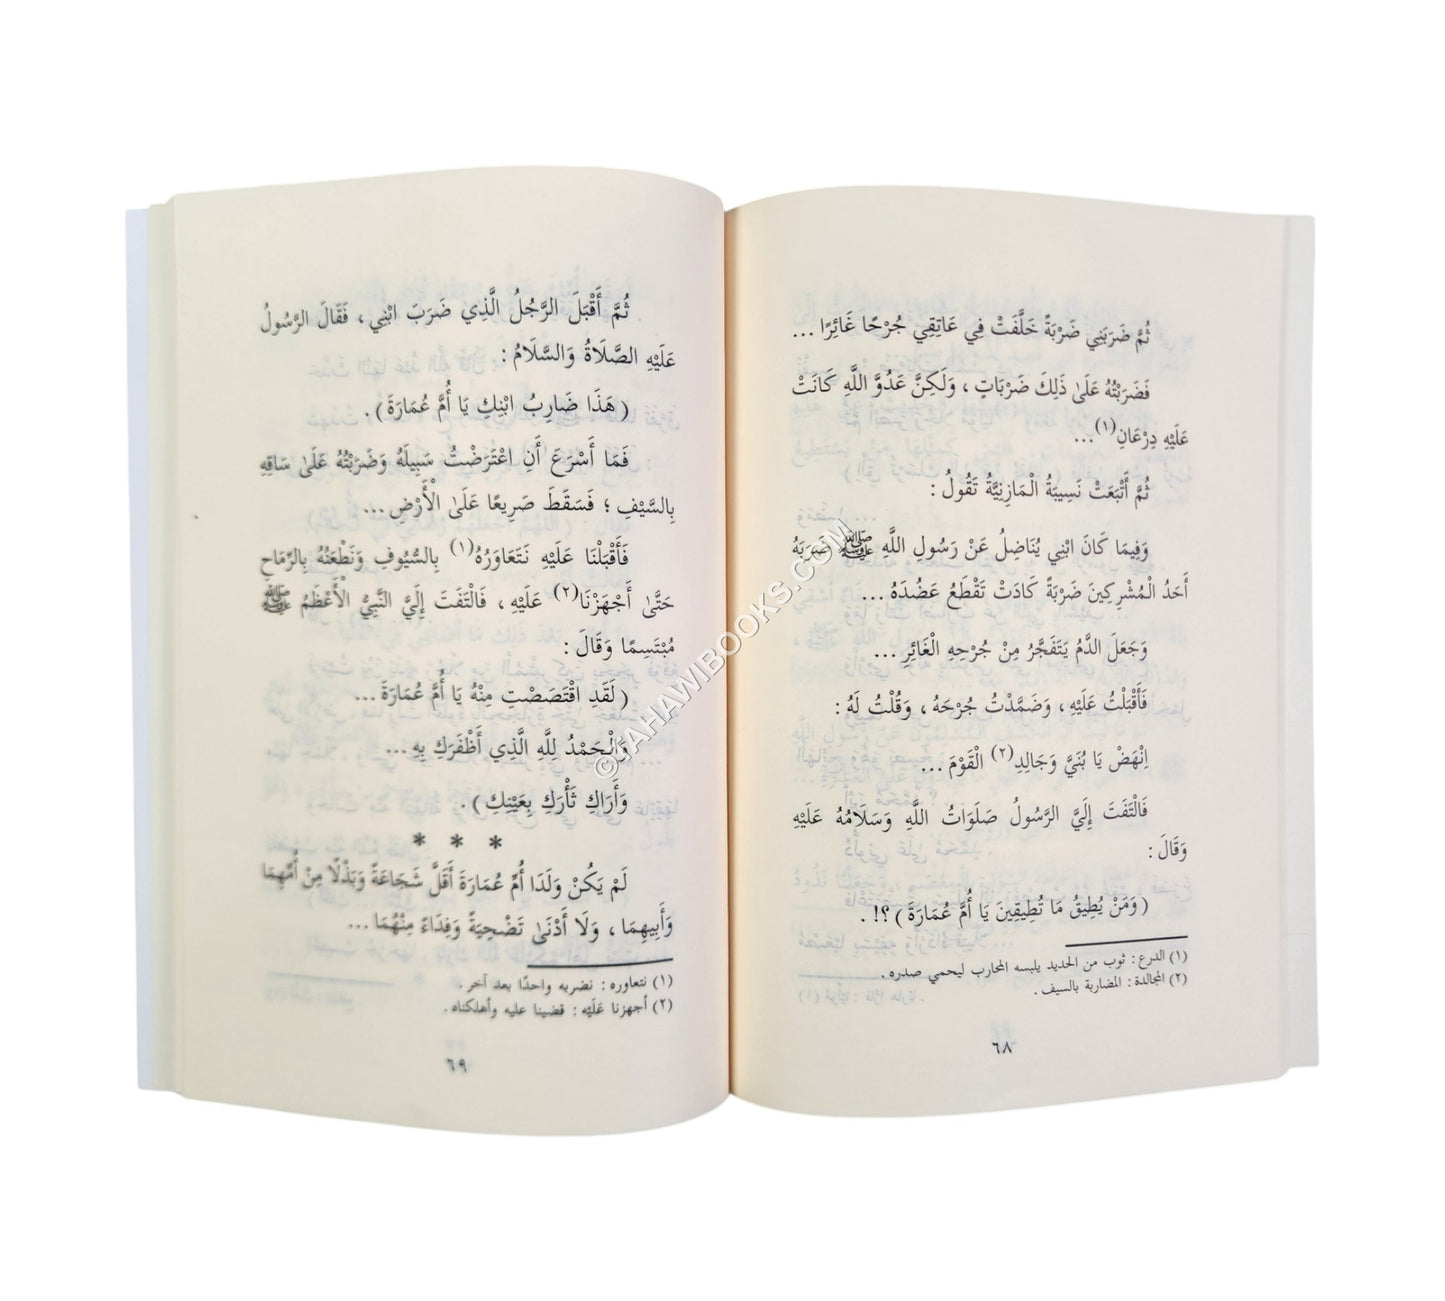 ثُمَّ ضَرَبَنِي ضَرْبَةً خَلَّفَتْ فِي عَاتِقِي جُرْحًا غَائِرًا ...
فَضَرَبْتُهُ عَلَىٰ ذَلِكَ ضَرْبَاتٍ ، وَلَكِنَّ عَدُوَّ اللَّهِ كَانَتْ
عَلَيْهِ دِرْعَانِ(١)...
ثُمَّ أَتْبَعَتْ نَسِيبَةُ الْمَازِنِيَّةُ تَقُولُ :
وَفِيمَا كَانَ ابْنِي يُنَاضِلُ عَنْ رَسُولِ اللَّهِ ﷺ ضَرَبَهُ
أَحَدُ الْمُشْرِكِينَ ضَرْبَةً كَادَتْ تَقْطَعُ عَضُدَهُ ...
وَجَعَلَ الدَّمُ يَتَفَجَّرُ مِنْ جُرْحِهِ الْغَائِرِ ...
فَأَقْبَلْتُ عَلَيْهِ ، وَضَمَّدْتُ جُرْحَهُ ، وَقُلْتُ لَهُ :
اِنْهَضْ يَا بُنَيَّ وَجَالِدِ(٢) الْقَوْمَ ...
فَالْتَفَتَ إِلَيَّ الرَّسُولُ صَلَوَاتُ اللَّهِ وَسَلَامُهُ عَلَيْهِ
وَقَالَ :
( وَمَنْ يُطِيقُ مَا تُطِيقِينَ يَا أُمَّ عُمَارَةَ ) ؟! .
(١) الدرع : ثوب من الحديد يلبسه المحارب ليحمي صدره .
(٢) المجالدة : المضاربة بالسيف .
٦٨
ثُمَّ أَقْبَلَ الرَّجُلُ الَّذِي ضَرَبَ ابْنِي ، فَقَالَ الرَّسُولُ
عَلَيْهِ الصَّلَاةُ وَالسَّلَامُ :
( هَذَا ضَارِبُ ابْنِكِ يَا أُمَّ عُمَارَةَ ) .
فَمَا أَسْرَعَ أَنِ اعْتَرَضْتُ سَبِيلَهُ وَضَرَبْتُهُ عَلَىٰ سَاقِهِ
بِالسَّيْفِ ؛ فَسَقَطَ صَرِيعًا عَلَىٰ الْأَرْضِ ...
فَأَقْبَلْنَا عَلَيْهِ نَتَعَاوَرُهُ(١) بِالسُّيُوفِ وَنَطْعَنُهُ بِالرِّمَاحِ
حَتَّىٰ أَجْهَزْنَا(٢) عَلَيْهِ ، فَالْتَفَتَ إِلَيَّ النَّبِيُّ الْأَعْظَمُ ﷺ
مُبْتَسِمًا وَقَالَ :
( لَقَدِ اقْتَصَصْتِ مِنْهُ يَا أُمَّ عُمَارَةَ ...
وَالْحَمْدُ لِلَّهِ الَّذِي أَظْفَرَكِ بِهِ ...
وَأَرَاكِ ثَأْرَكِ بِعَيْنِكِ ) .
* * *
لَمْ يَكُنْ وَلَدَا أُمِّ عُمَارَةَ أَقَلَّ شَجَاعَةً وَبَذْلًا مِنْ أُمِّهِمَا
وَأَبِيهِمَا ، وَلَا أَدْنَىٰ تَضْحِيَةً وَفِدَاءً مِنْهُمَا ...
(١) نتعاوره : نضربه واحدًا بعد آخر .
(٢) أجهزنا عَلَيْه : قضينا عليه وأهلكناه .
٦٩
© TAHAWIBOOKS.COM